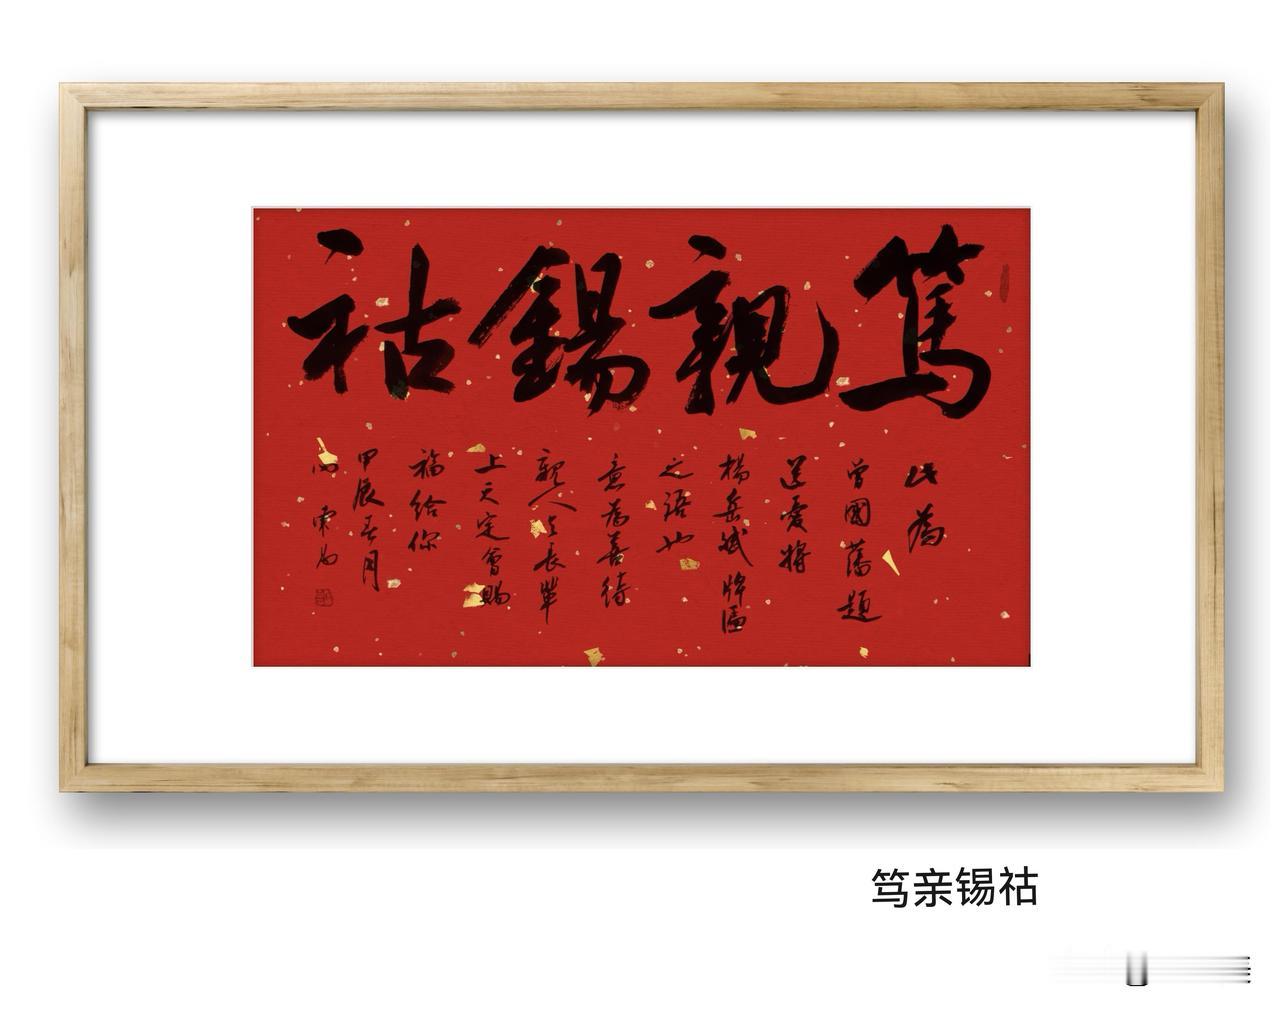 篤親錫祜
此為
曾國藩題
送愛將
楊岳斌牌匾
之語也
意為善待
親人與長輩
上天定會賜
福給你
甲辰春月
笃亲锡祜